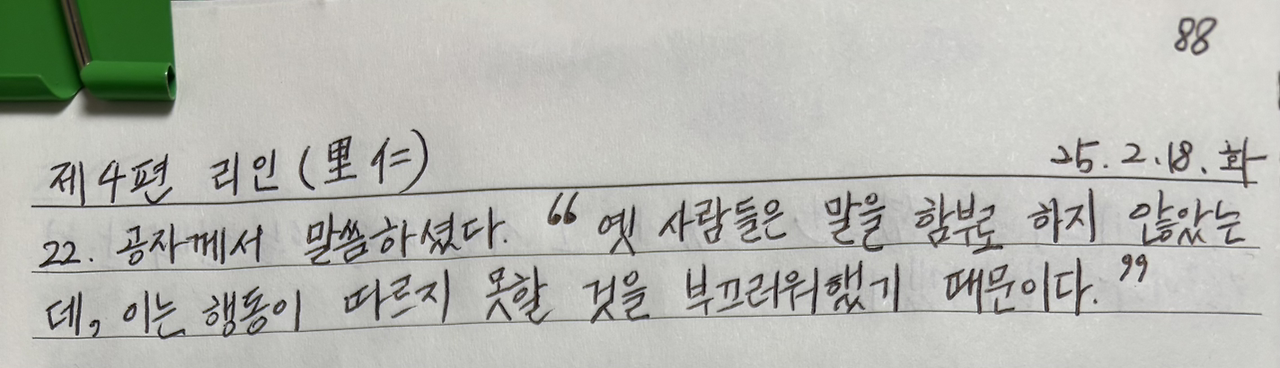 88
제4편 리인(里仁) 25.2.18.화
22. 공자께서 말씀하셨다. “옛 사람들은 말을 함부로 하지 않았는
데, 이는 행동이 따르지 못할 것을 부끄러워했기 때문이다.”